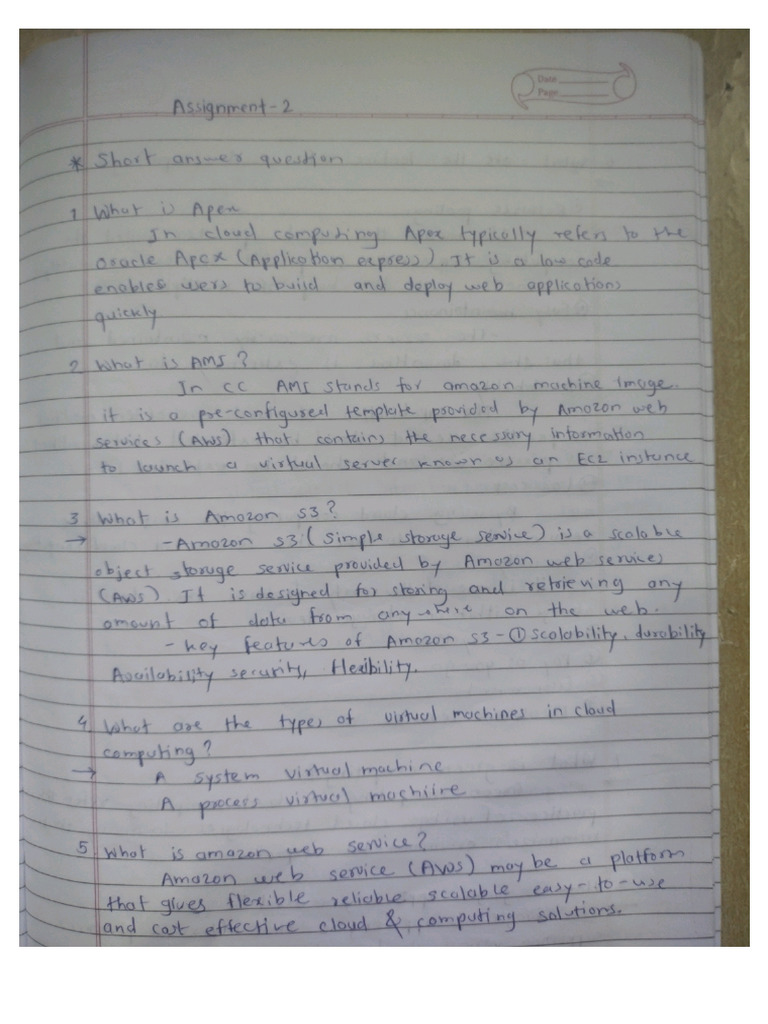 Date
Page
Assignment-2
* Short answer question
1 What is Apex
In cloud computing Apex typically refers to the
oracle Apex (Application express). It is a low code
enables users to build and deploy web applications
quickly
2 What is AMI ?
In CC AMI stands for amazon machine Image.
it is a pre-configured template provided by Amazon web
services (AWS) that contains the necessary information
to launch a virtual server known us an EC2 instance
3 What is Amazon S3 ?
→ - Amazon S3 ( simple storage service) is a scalable
object storage service provided by Amazon web services
(AWS). It is designed for storing and retrieving any
amount of data from anywhere on the web.
- key features of Amazon S3 - ① scalability, durability
Availability security, flexibility.
4 What are the types of virtual machines in cloud
computing ?
→ A system virtual machine
A process virtual machiire
5 What is amazon web service ?
Amazon web service (AWS) may be a platform
that gives flexible reliable scalable easy-to-use
and cost effective cloud & computing solutions.